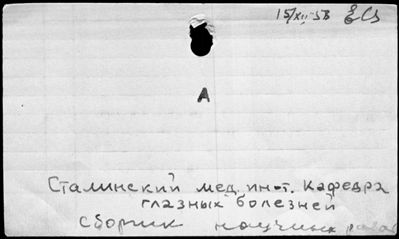 15/XII 53
А
Сталинский мед. инст. Кафедра
глазных болезней
Сборник научных работ